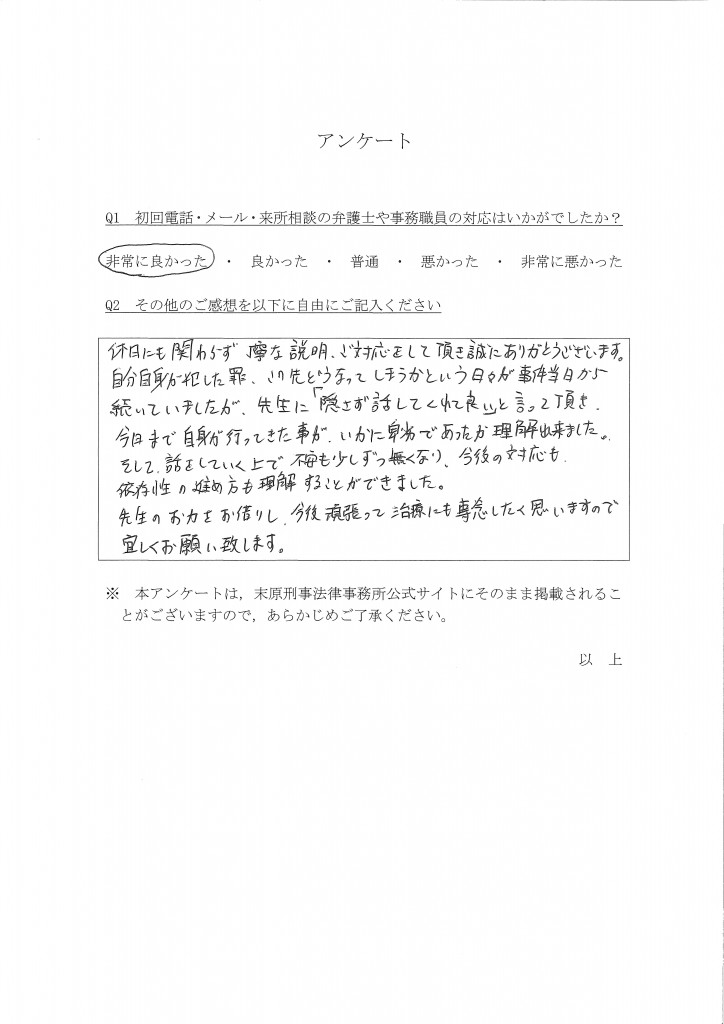 アンケート
Q1　初回電話・メール・来所相談の弁護士や事務職員の対応はいかがでしたか？
非常に良かった　・　良かった　・　普通　・　悪かった　・　非常に悪かった
Q2　その他のご感想を以下に自由にご記入ください
休日にも関わらず 寧な説明、ご対応をして頂き誠にありがとうございます。
自分自身が犯した罪、この先どうなってしまうかという日々が事件当日から
続いていましたが、先生に「隠さず話してくれて良い」と言って頂き、
今日まで自身が行ってきた事が、いかに であったか理解出来ました。
そして、話をしていく上で 不安も少しずつ無くなり、今後の対応も、
依存性の め方も理解することができました。
先生のお力をお借りし、今後頑張って治療にも専念したく思いますので
宜しくお願い致します。
※　本アンケートは，末原刑事法律事務所公式サイトにそのまま掲載されるこ
とがございますので，あらかじめご了承ください。
以　上